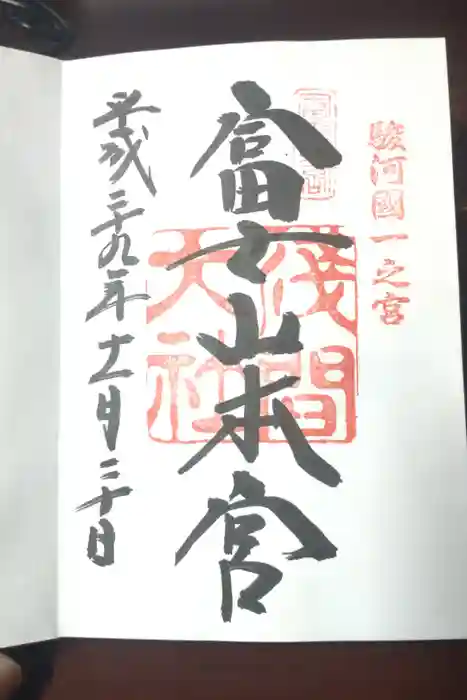 駿河國一之宮
富士山本宮
淺間
大社
平成二十九年十一月三十日